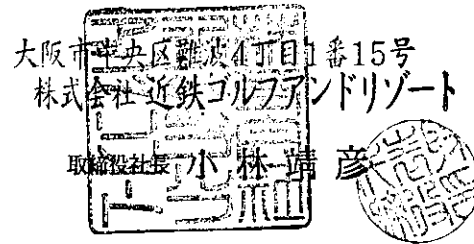 大阪市中央区難波4丁目1番15号
株式会社近鉄ゴルフアンドリゾート
取締役社長 小林靖彦